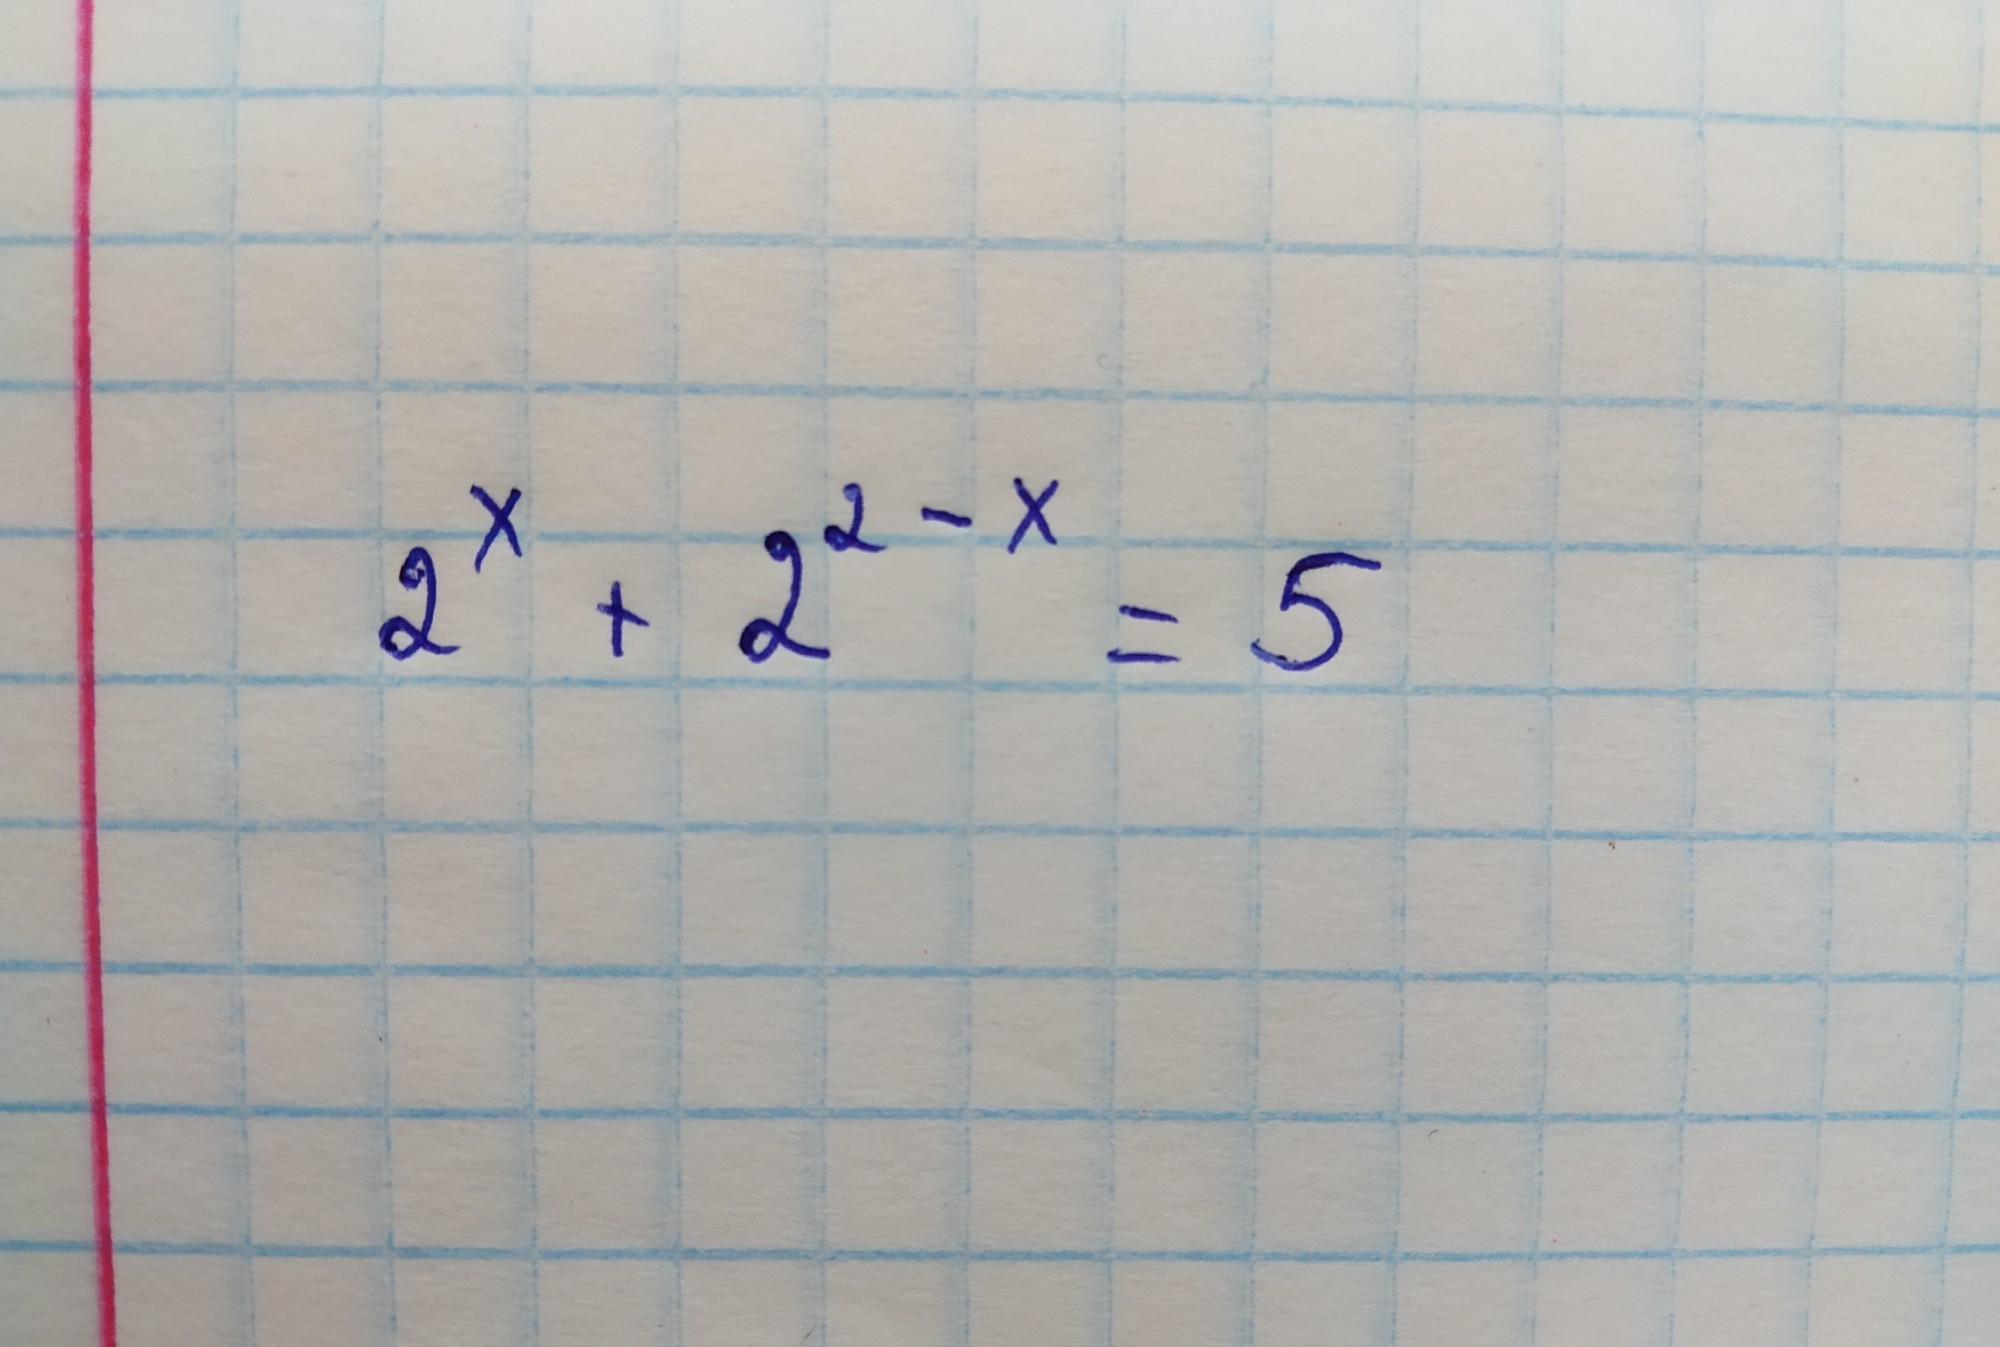 2^x + 2^{2-x} = 5